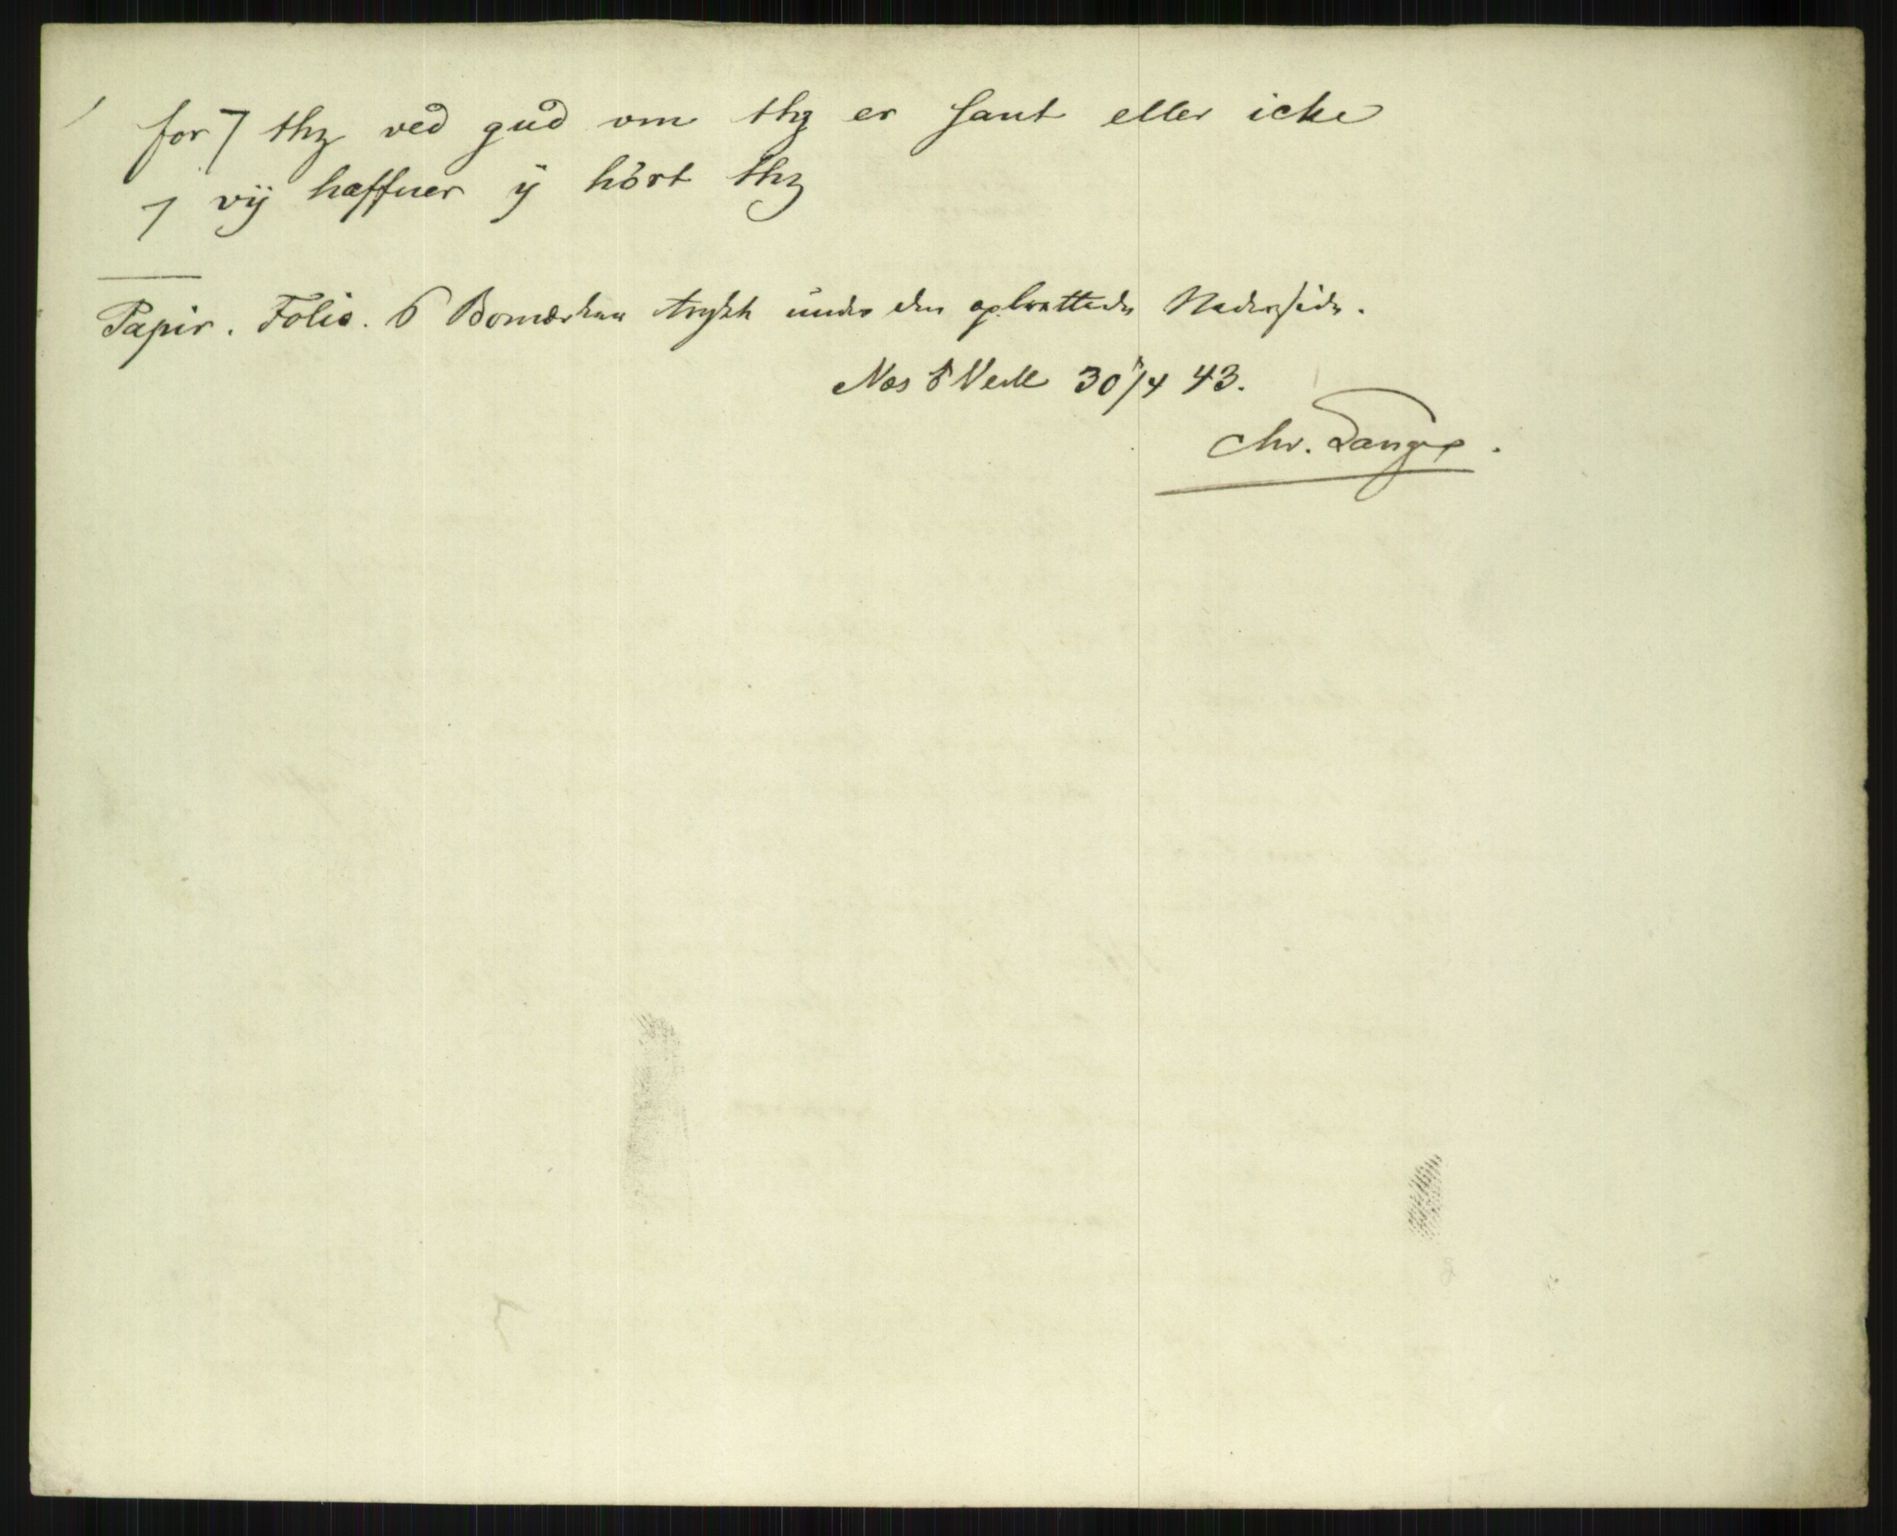 for ⁊ thz ved gud om thz er sant eller icke
⁊ vÿ haffuer ÿ hört thz
Papir. Folio. 6 Bomærker trykte under den opbrettede Nederside.
Næs 30/4 43.
Chr. Lange.